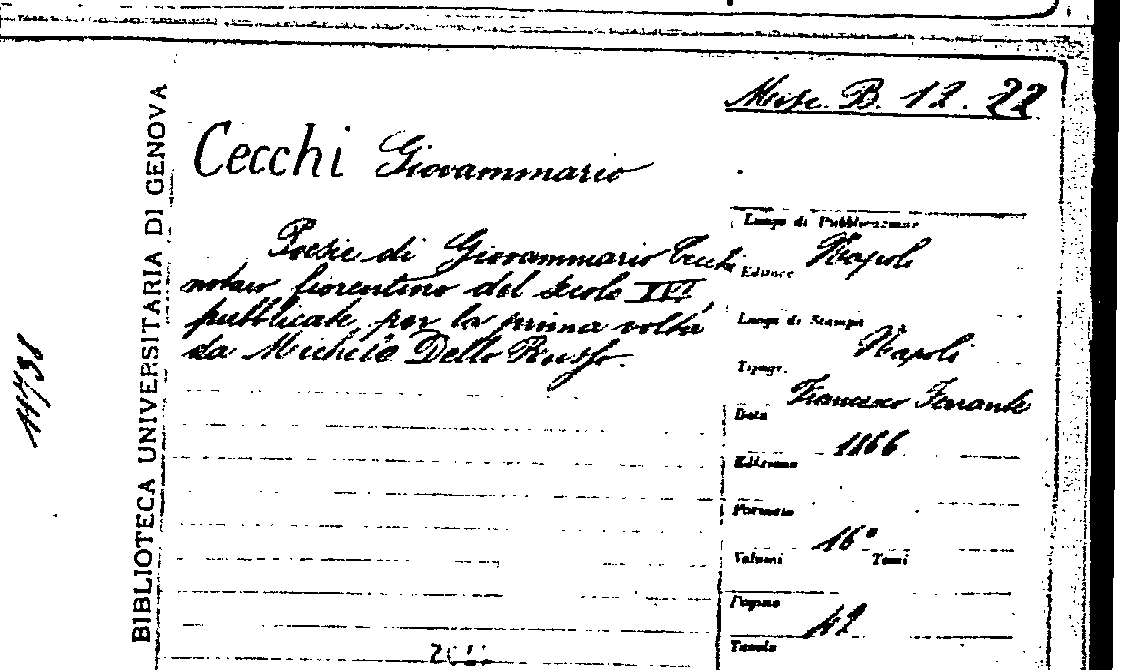 Misc. B. 12. 22
Cecchi Giovammario
Poesie di Giovammario Cecchi
notaio fiorentino del secolo XVI,
pubblicate per la prima volta
da Michele Dello Russo.
Luogo di Pubblicazione
Napoli
Editore
Luogo di Stampa
Napoli
Tipogr.
Francesco Ferrante
Data
1866
Edizione
Formato
16°
Volumi Tomi
Pagine
42
Tavole
BIBLIOTECA UNIVERSITARIA DI GENOVA